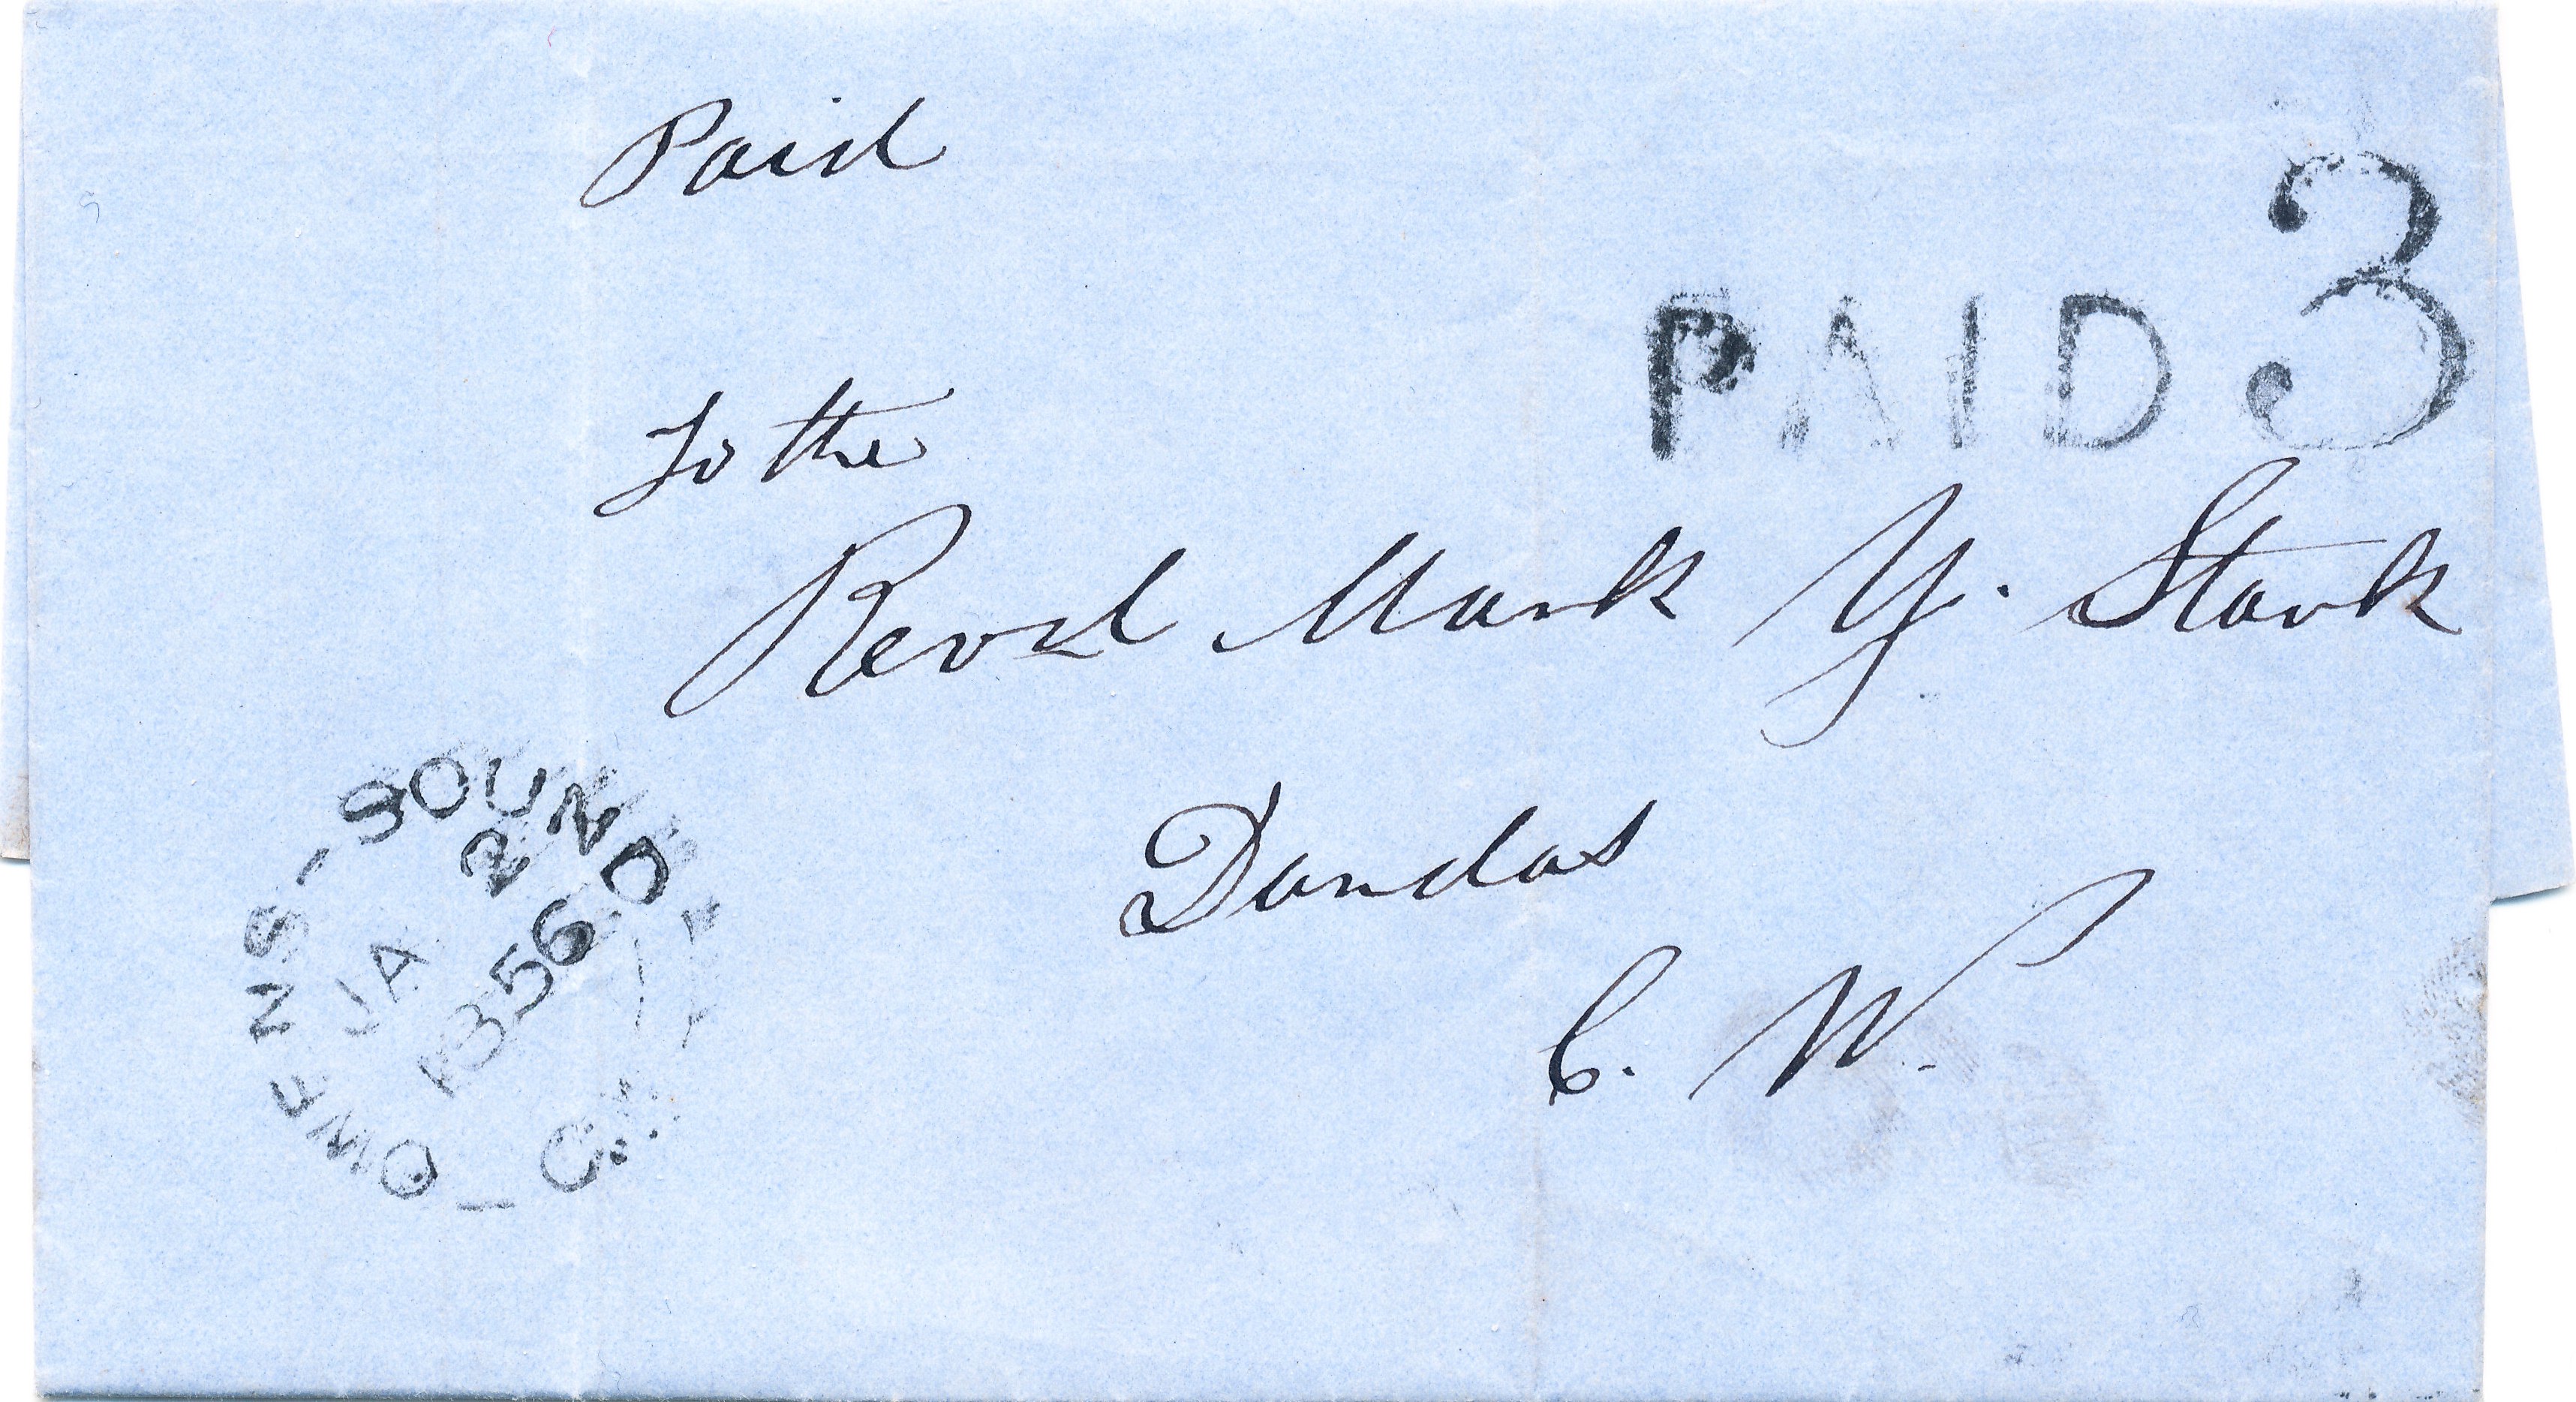 Paid
PAID 3
To the
Revd Mark Y. Stark
Dundas
C. W.
OWENS-SOUND
JA 2
1856
C.